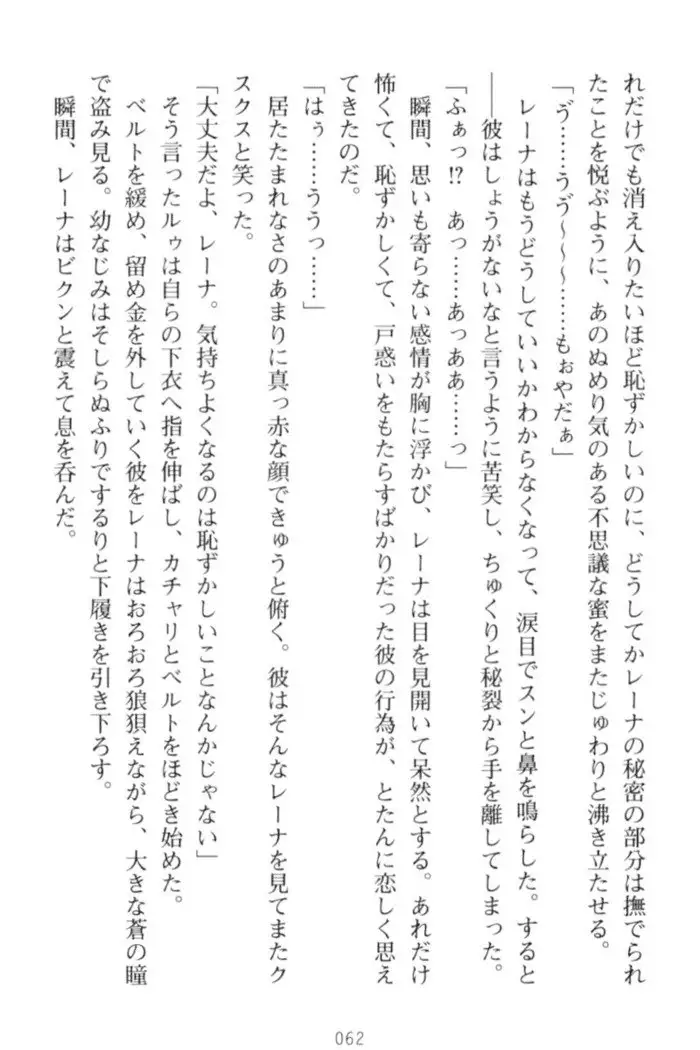 れだけでも消え入りたいほど恥ずかしいのに、どうしてかレーナの秘密の部分は撫でられ
たことを悦ぶように、あのぬめり気のある不思議な蜜をまたじゅわりと沸き立たせる。
「ゔ……うゔ～～～……もぉやだぁ」
レーナはもうどうしていいかわからなくなって、涙目でスンと鼻を鳴らした。すると
――彼はしょうがないなと言うように苦笑し、ちゅくりと秘裂から手を離してしまった。
「ふぁっ!?　あっ……あっああ……っ」
瞬間、思いも寄らない感情が胸に浮かび、レーナは目を見開いて呆然とする。あれだけ
怖くて、恥ずかしくて、戸惑いをもたらすばかりだった彼の行為が、とたんに恋しく思え
てきたのだ。
「はぅ……ううっ……」
居たたまれなさのあまりに真っ赤な顔できゅうと俯く。彼はそんなレーナを見てまたク
スクスと笑った。
「大丈夫だよ、レーナ。気持ちよくなるのは恥ずかしいことなんかじゃない」
そう言ったルゥは自らの下衣へ指を伸ばし、カチャリとベルトをほどき始めた。
ベルトを緩め、留め金を外していく彼をレーナはおろおろ狼狽えながら、大きな蒼の瞳
で盗み見る。幼なじみはそしらぬふりでするりと下履きを引き下ろす。
瞬間、レーナはビクンと震えて息を呑んだ。
062